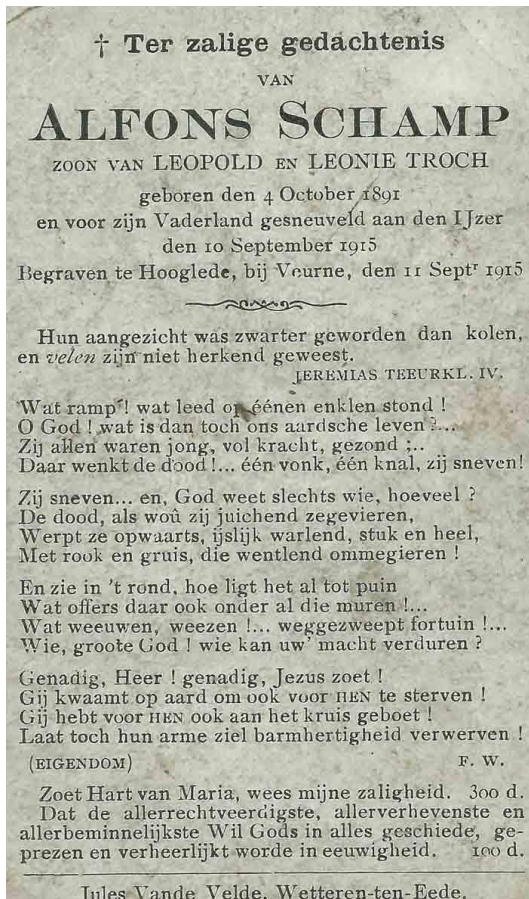 † Ter zalige gedachtenis
VAN
ALFONS SCHAMP
ZOON VAN LEOPOLD EN LEONIE TROCH
geboren den 4 October 1891
en voor zijn Vaderland gesneuveld aan den IJzer
den 10 September 1915
Begraven te Hooglede, bij Veurne, den 11 Septr 1915
Hun aangezicht was zwarter geworden dan kolen,
en velen zijn niet herkend geweest.
JEREMIAS TEEURKL. IV.
Wat ramp ! wat leed op éénen enklen stond !
O God ! wat is dan toch ons aardsche leven ?...
Zij allen waren jong, vol kracht, gezond ;..
Daar wenkt de dood !... één vonk, één knal, zij sneven!
Zij sneven... en, God weet slechts wie, hoeveel ?
De dood, als woû zij juichend zegevieren,
Werpt ze opwaarts, ijslijk warlend, stuk en heel,
Met rook en gruis, die wentlend ommegieren !
En zie in 't rond, hoe ligt het al tot puin
Wat offers daar ook onder al die muren !...
Wat weeuwen, weezen !... weggezweept fortuin !...
Wie, groote God ! wie kan uw' macht verduren ?
Genadig, Heer ! genadig, Jezus zoet !
Gij kwaamt op aard om ook voor HEN te sterven !
Gij hebt voor HEN ook aan het kruis geboet !
Laat toch hun arme ziel barmhertigheid verwerven !
(EIGENDOM) F. W.
Zoet Hart van Maria, wees mijne zaligheid. 300 d.
Dat de allerrechtveerdigste, allerverhevenste en
allerbeminnelijkste Wil Gods in alles geschiede, ge-
prezen en verheerlijkt worde in eeuwigheid. 100 d.
Jules Vande Velde, Wetteren-ten-Eede.